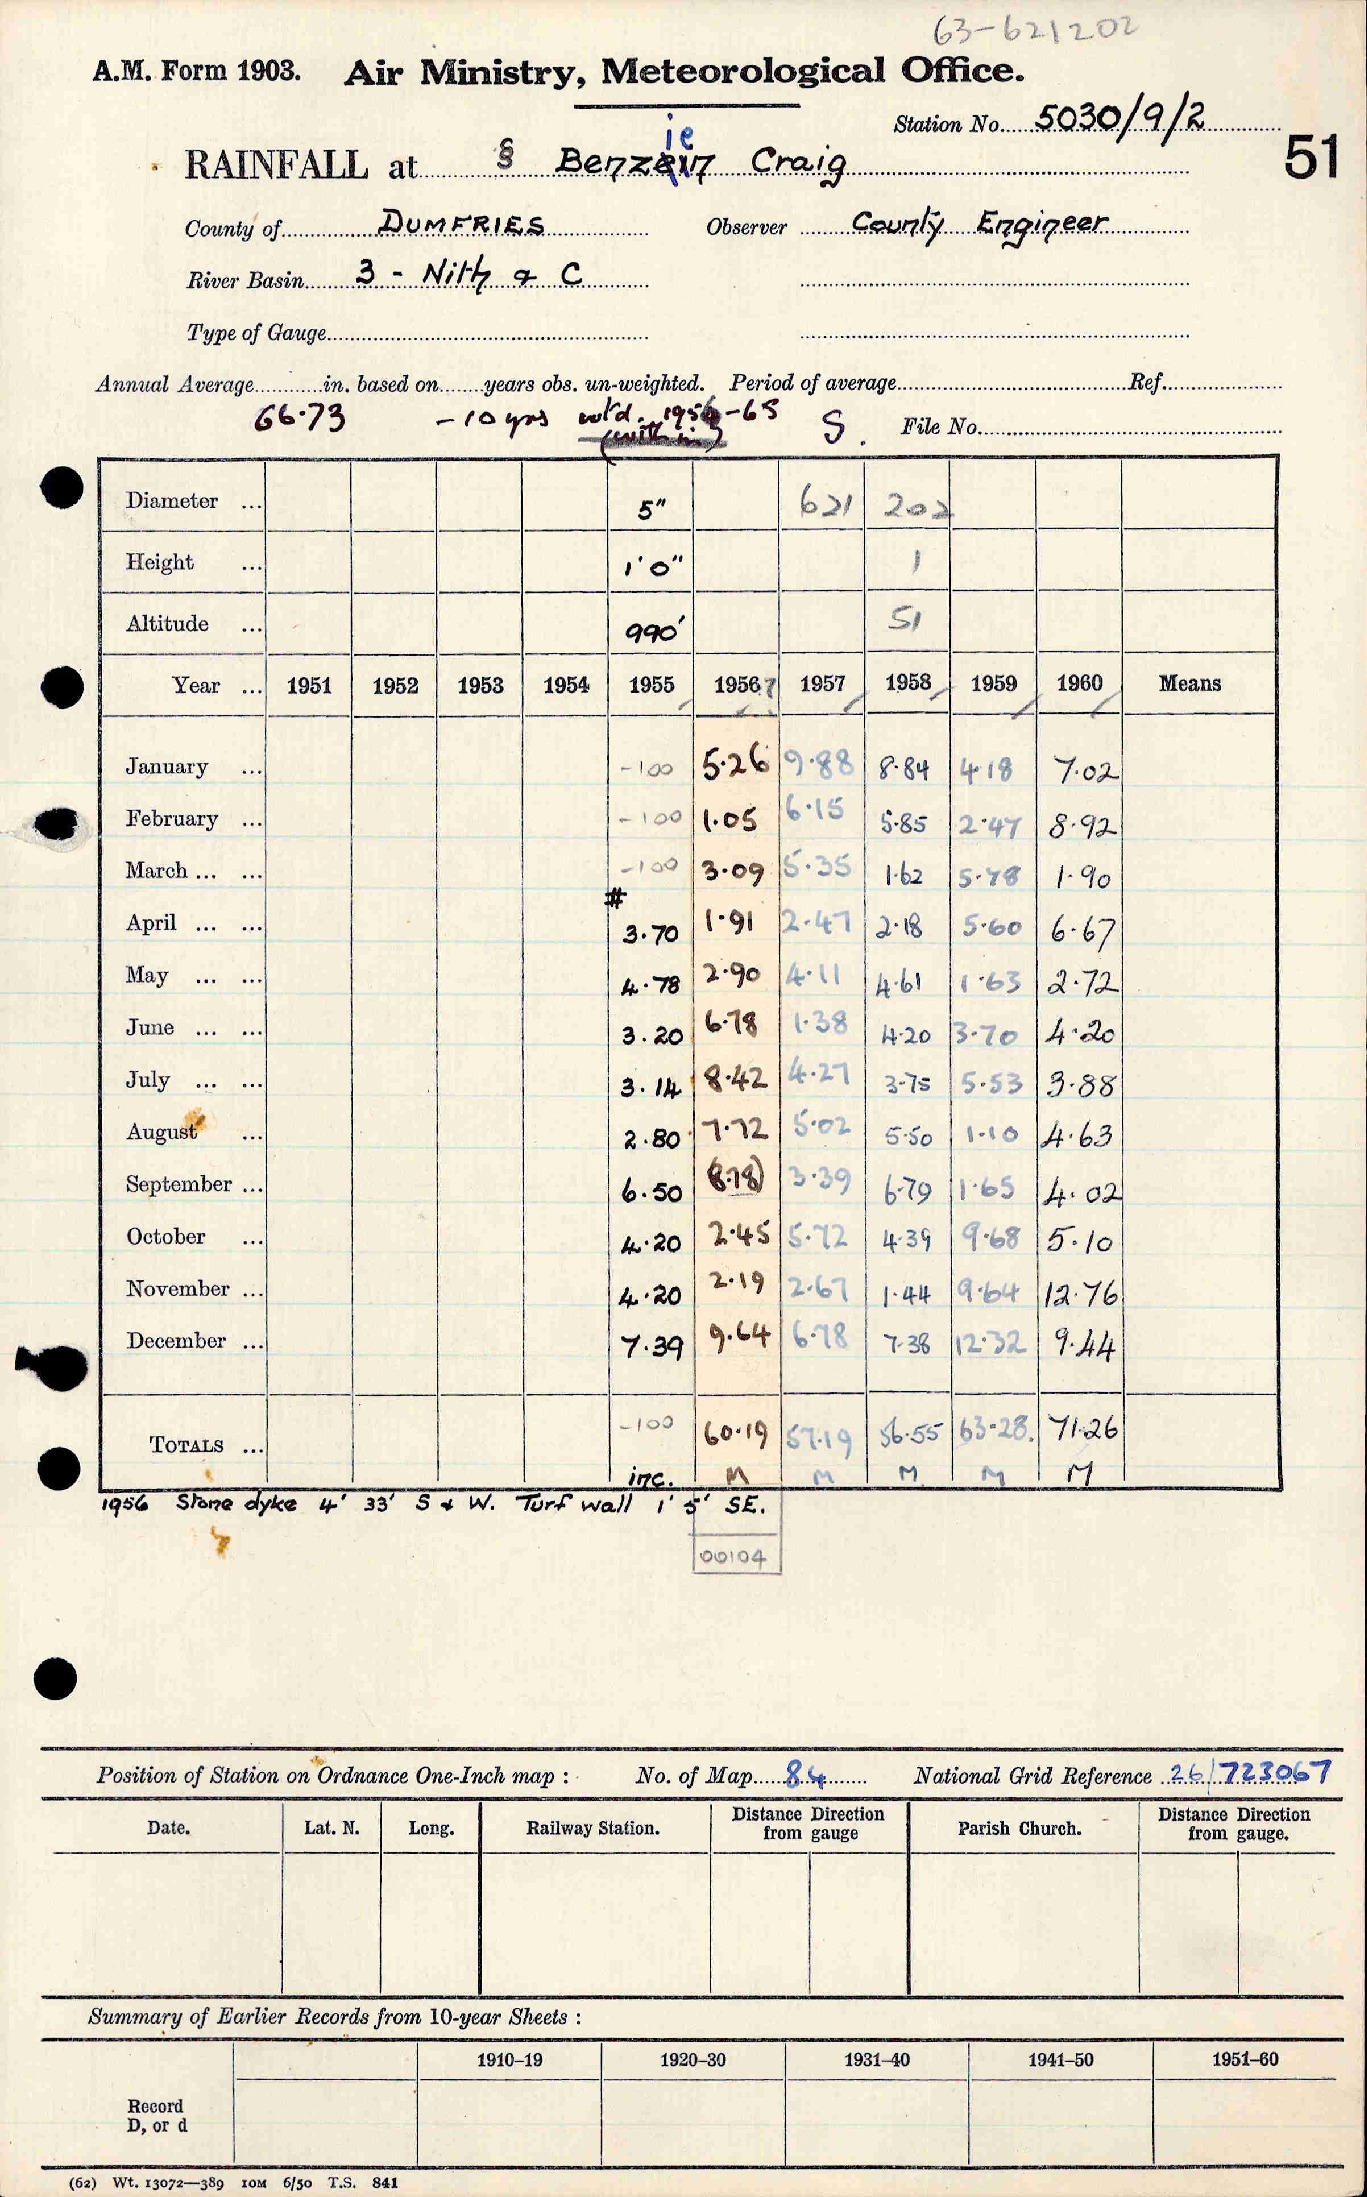 63-621202
A.M. Form 1903. Air Ministry, Meteorological Office.
Station No. 5030/9/2
51
ie
RAINFALL at § Benzein Craig
County of DUMFRIES Observer County Engineer
River Basin 3 - Nith & C
Type of Gauge
Annual Average in. based on years obs. un-weighted. Period of average Ref.
66.73 - 10 yrs wtd. 1956-65 S. File No.
Diameter ... 5" 621 202
Height ... 1' 0" 1
Altitude ... 990' 51
Year ... 1951 1952 1953 1954 1955 1956 1957 1958 1959 1960 Means
January ... -100 5.26 9.88 8.84 4.18 7.02
February ... -100 1.05 6.15 5.85 2.47 8.92
March ... ... -100 3.09 5.35 1.62 5.78 1.90
#
April ... ... 3.70 1.91 2.47 2.18 5.60 6.67
May ... ... 4.78 2.90 4.11 4.61 1.63 2.72
June ... ... 3.20 6.78 1.38 4.20 3.70 4.20
July ... ... 3.14 8.42 4.27 3.75 5.53 3.88
August ... 2.80 7.72 5.02 5.50 1.10 4.63
September ... 6.50 (8.78) 3.39 6.79 1.65 4.02
October ... 4.20 2.45 5.72 4.39 9.68 5.10
November ... 4.20 2.19 2.67 1.44 9.64 12.76
December ... 7.39 9.64 6.78 7.38 12.32 9.44
TOTALS ... -100 60.19 57.19 56.55 63.28. 71.26
inc. M M M M M
1956 Stone dyke 4' 33' S & W. Turf wall 1' 5' SE.
00104
Position of Station on Ordnance One-Inch map : No. of Map 84 National Grid Reference 26/723067
Date. Lat. N. Long. Railway Station. Distance Direction from gauge Parish Church. Distance Direction from gauge.
Summary of Earlier Records from 10-year Sheets :
1910–19 1920–30 1931–40 1941–50 1951–60
Record
D, or d
(62) Wt. 13072—389 10M 6/50 T.S. 841